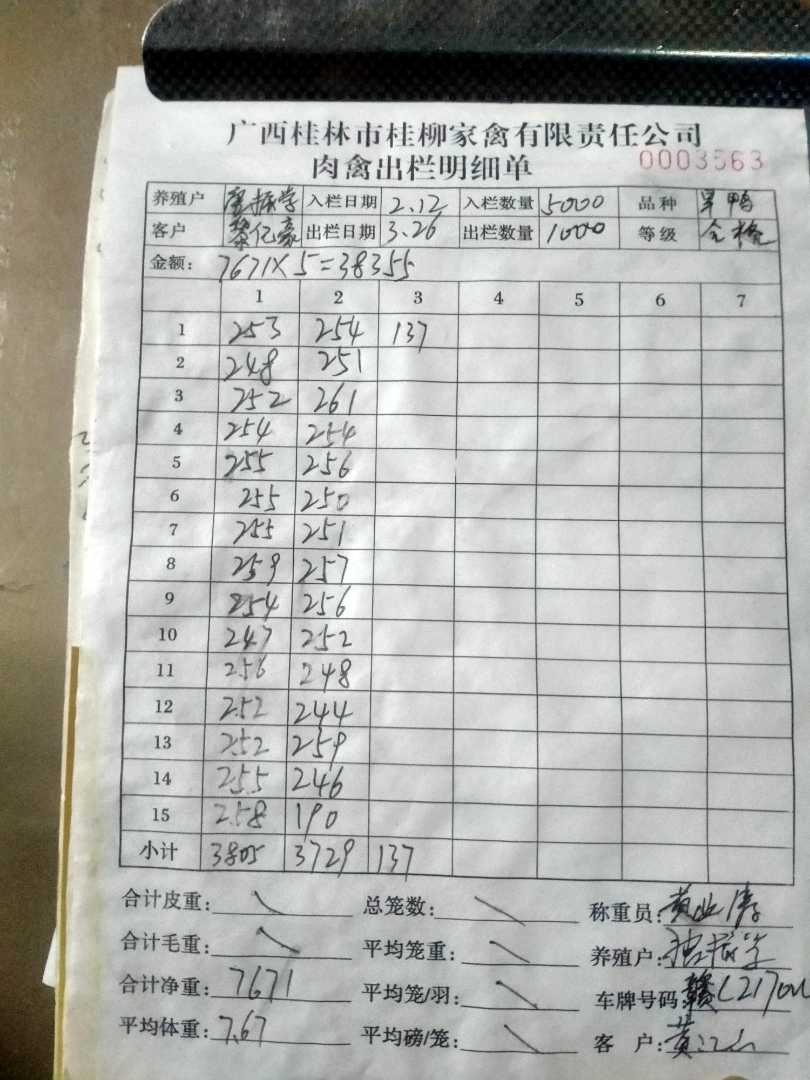 广西桂林市桂柳家禽有限责任公司
肉禽出栏明细单 0003563
养殖户 振学 入栏日期 2.12 入栏数量 5000 品种 旱鸭
客户 黎亿豪 出栏日期 3.26 出栏数量 1000 等级 合格
金额: 7671X5=38355
1 2 3 4 5 6 7
1 253 254 137
2 248 251
3 252 261
4 254 254
5 255 256
6 255 250
7 255 251
8 259 257
9 254 256
10 247 252
11 256 248
12 252 244
13 252 259
14 255 246
15 258 190
小计 3805 3729 137
合计皮重: 总笼数: 称重员: 黄业
合计毛重: 平均笼重: 养殖户: 振学
合计净重: 7671 平均笼/羽: 车牌号码: 赣L2170
平均体重: 7.67 平均磅/笼: 客 户: 黄江